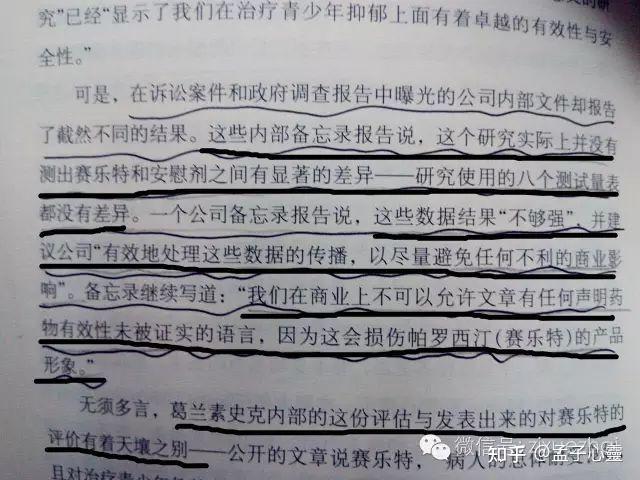 究”已经“显示了我们在治疗青少年抑郁上面有着卓越的有效性与安
全性。”
可是，在诉讼案件和政府调查报告中曝光的公司内部文件却报告
了截然不同的结果。这些内部备忘录报告说，这个研究实际上并没有
测出赛乐特和安慰剂之间有显著的差异——研究使用的八个测试量表
都没有差异。一个公司备忘录报告说，这些数据结果“不够强”，并建
议公司“有效地处理这些数据的传播，以尽量避免任何不利的商业影
响”。备忘录继续写道：“我们在商业上不可以允许文章有任何声明药
物有效性未被证实的语言，因为这会损伤帕罗西汀(赛乐特)的产品
形象。”
无须多言，葛兰素史克内部的这份评估与发表出来的对赛乐特的
评价有着天壤之别——公开的文章说赛乐特，
微信号:
知乎 @孟子心曼